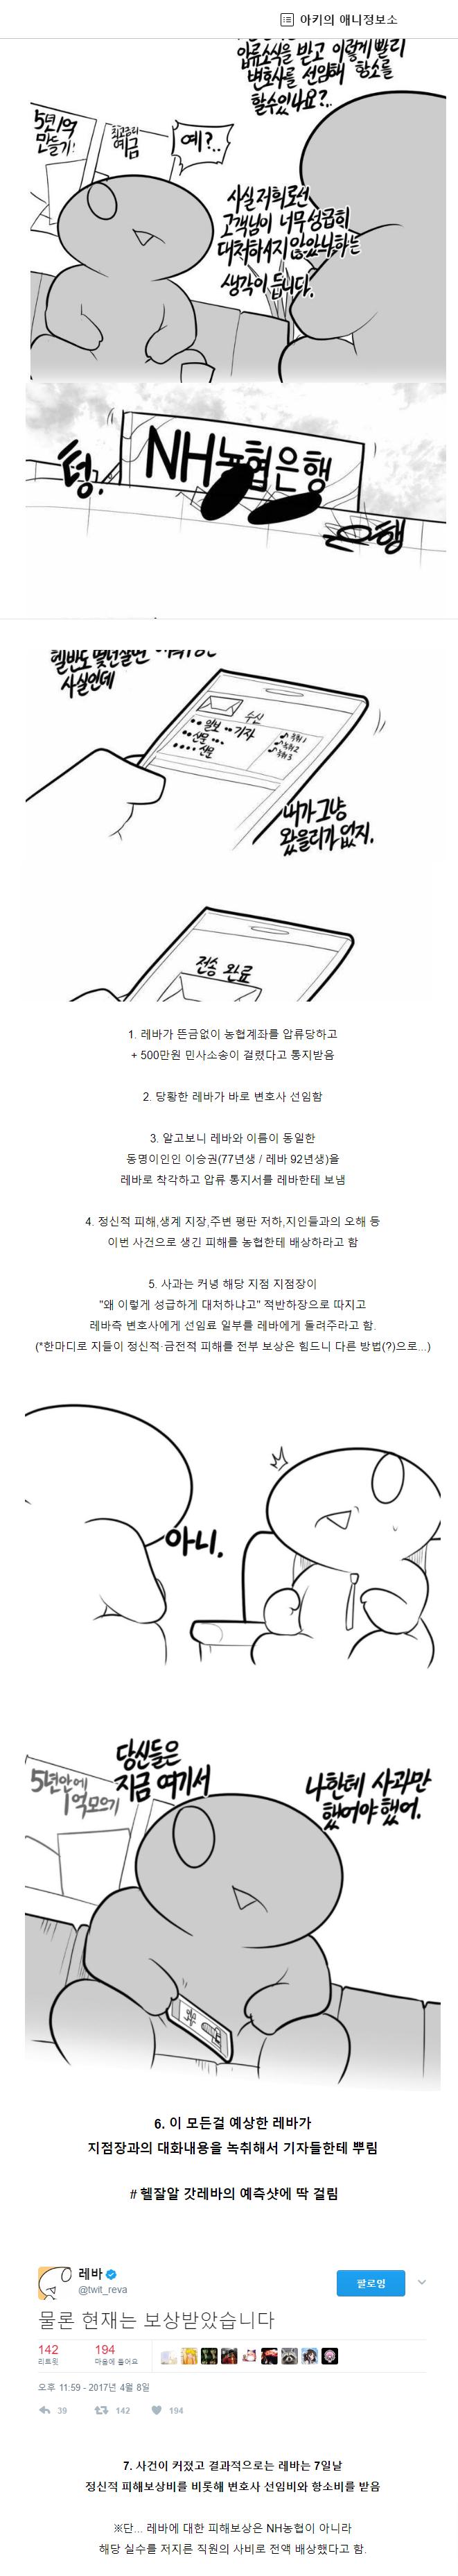 아키의 애니정보소
압류소식을 받고 이렇게 빨리
변호사를 선임해 항소를
할수있나요?..
5년 1억
만들기!
최고금리
예금
예?..
사실 저희로선
고객님이 너무 성급히
대처하시지 않았나하는
생각이 듭니다.
텅.
NH농협은행
은행
사실인데
수신
일보 기자
신문
신문
녹취1
녹취2
녹취3
내가 그냥
왔을리가 없지.
전송 완료
1. 레바가 뜬금없이 농협계좌를 압류당하고
+ 500만원 민사소송이 걸렸다고 통지받음
2. 당황한 레바가 바로 변호사 선임함
3. 알고보니 레바와 이름이 동일한
동명이인인 이승권(77년생 / 레바 92년생)을
레바로 착각하고 압류 통지서를 레바한테 보냄
4. 정신적 피해,생계 지장,주변 평판 저하,지인들과의 오해 등
이번 사건으로 생긴 피해를 농협한테 배상하라고 함
5. 사과는 커녕 해당 지점 지점장이
"왜 이렇게 성급하게 대처하냐고" 적반하장으로 따지고
레바측 변호사에게 선임료 일부를 레바에게 돌려주라고 함.
(*한마디로 지들이 정신적·금전적 피해를 전부 보상은 힘드니 다른 방법(?)으로...)
아니.
당신들은
지금 여기서
5년안에
1억모으기
나한테 사과만
했어야 했어.
6. 이 모든걸 예상한 레바가
지점장과의 대화내용을 녹취해서 기자들한테 뿌림
# 헬잘알 갓레바의 예측샷에 딱 걸림
레바
@twit_reva
팔로잉
물론 현재는 보상받았습니다
142 194
리트윗 마음에 들어요
오후 11:59 - 2017년 4월 8일
39 142 194
7. 사건이 커졌고 결과적으로는 레바는 7일날
정신적 피해보상비를 비롯해 변호사 선임비와 항소비를 받음
※단... 레바에 대한 피해보상은 NH농협이 아니라
해당 실수를 저지른 직원의 사비로 전액 배상했다고 함.